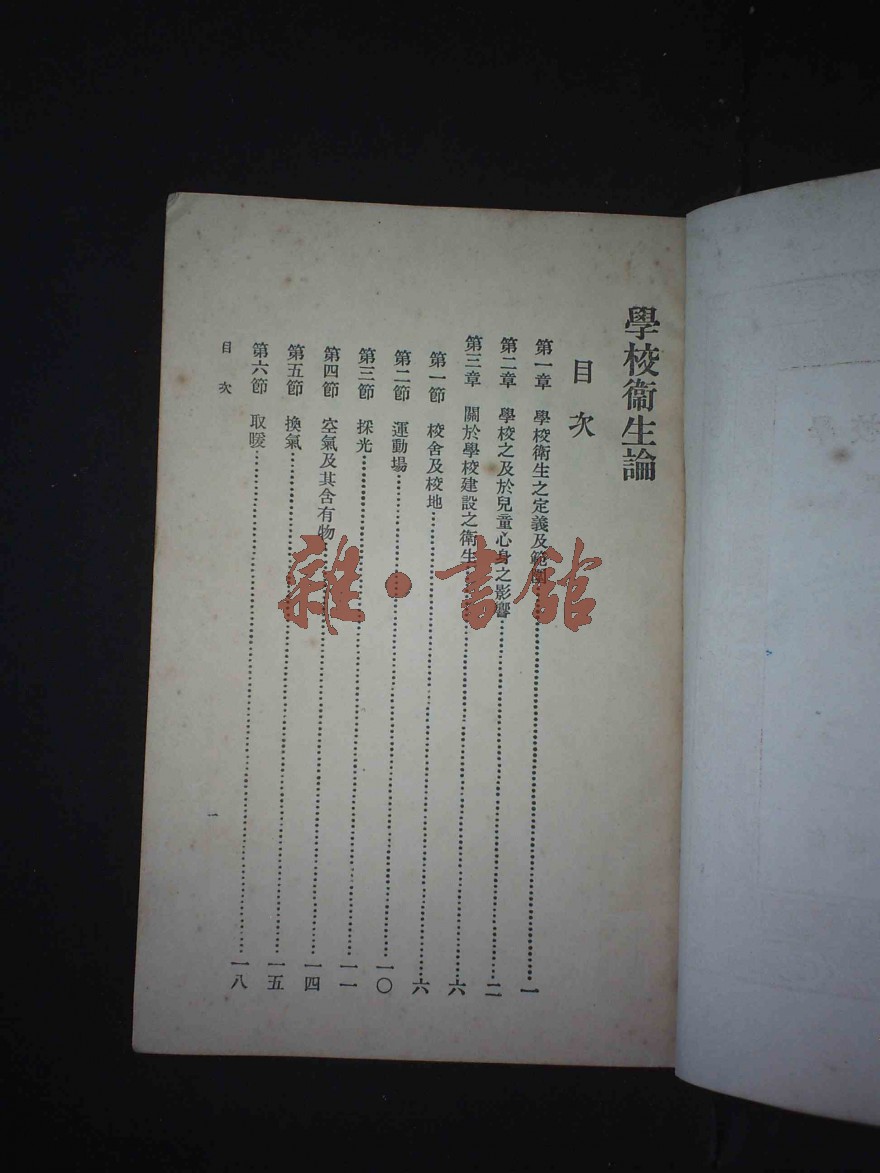 學校衞生論
目次
第一章 學校衛生之定義及範圍…………一
第二章 學校之及於兒童心身之影響…………二
第三章 關於學校建設之衛生…………六
第一節 校舍及校地…………六
第二節 運動場…………一〇
第三節 採光…………一一
第四節 空氣及其含有物…………一四
第五節 換氣…………一五
第六節 取暖…………一八
目次
一
雜·書館